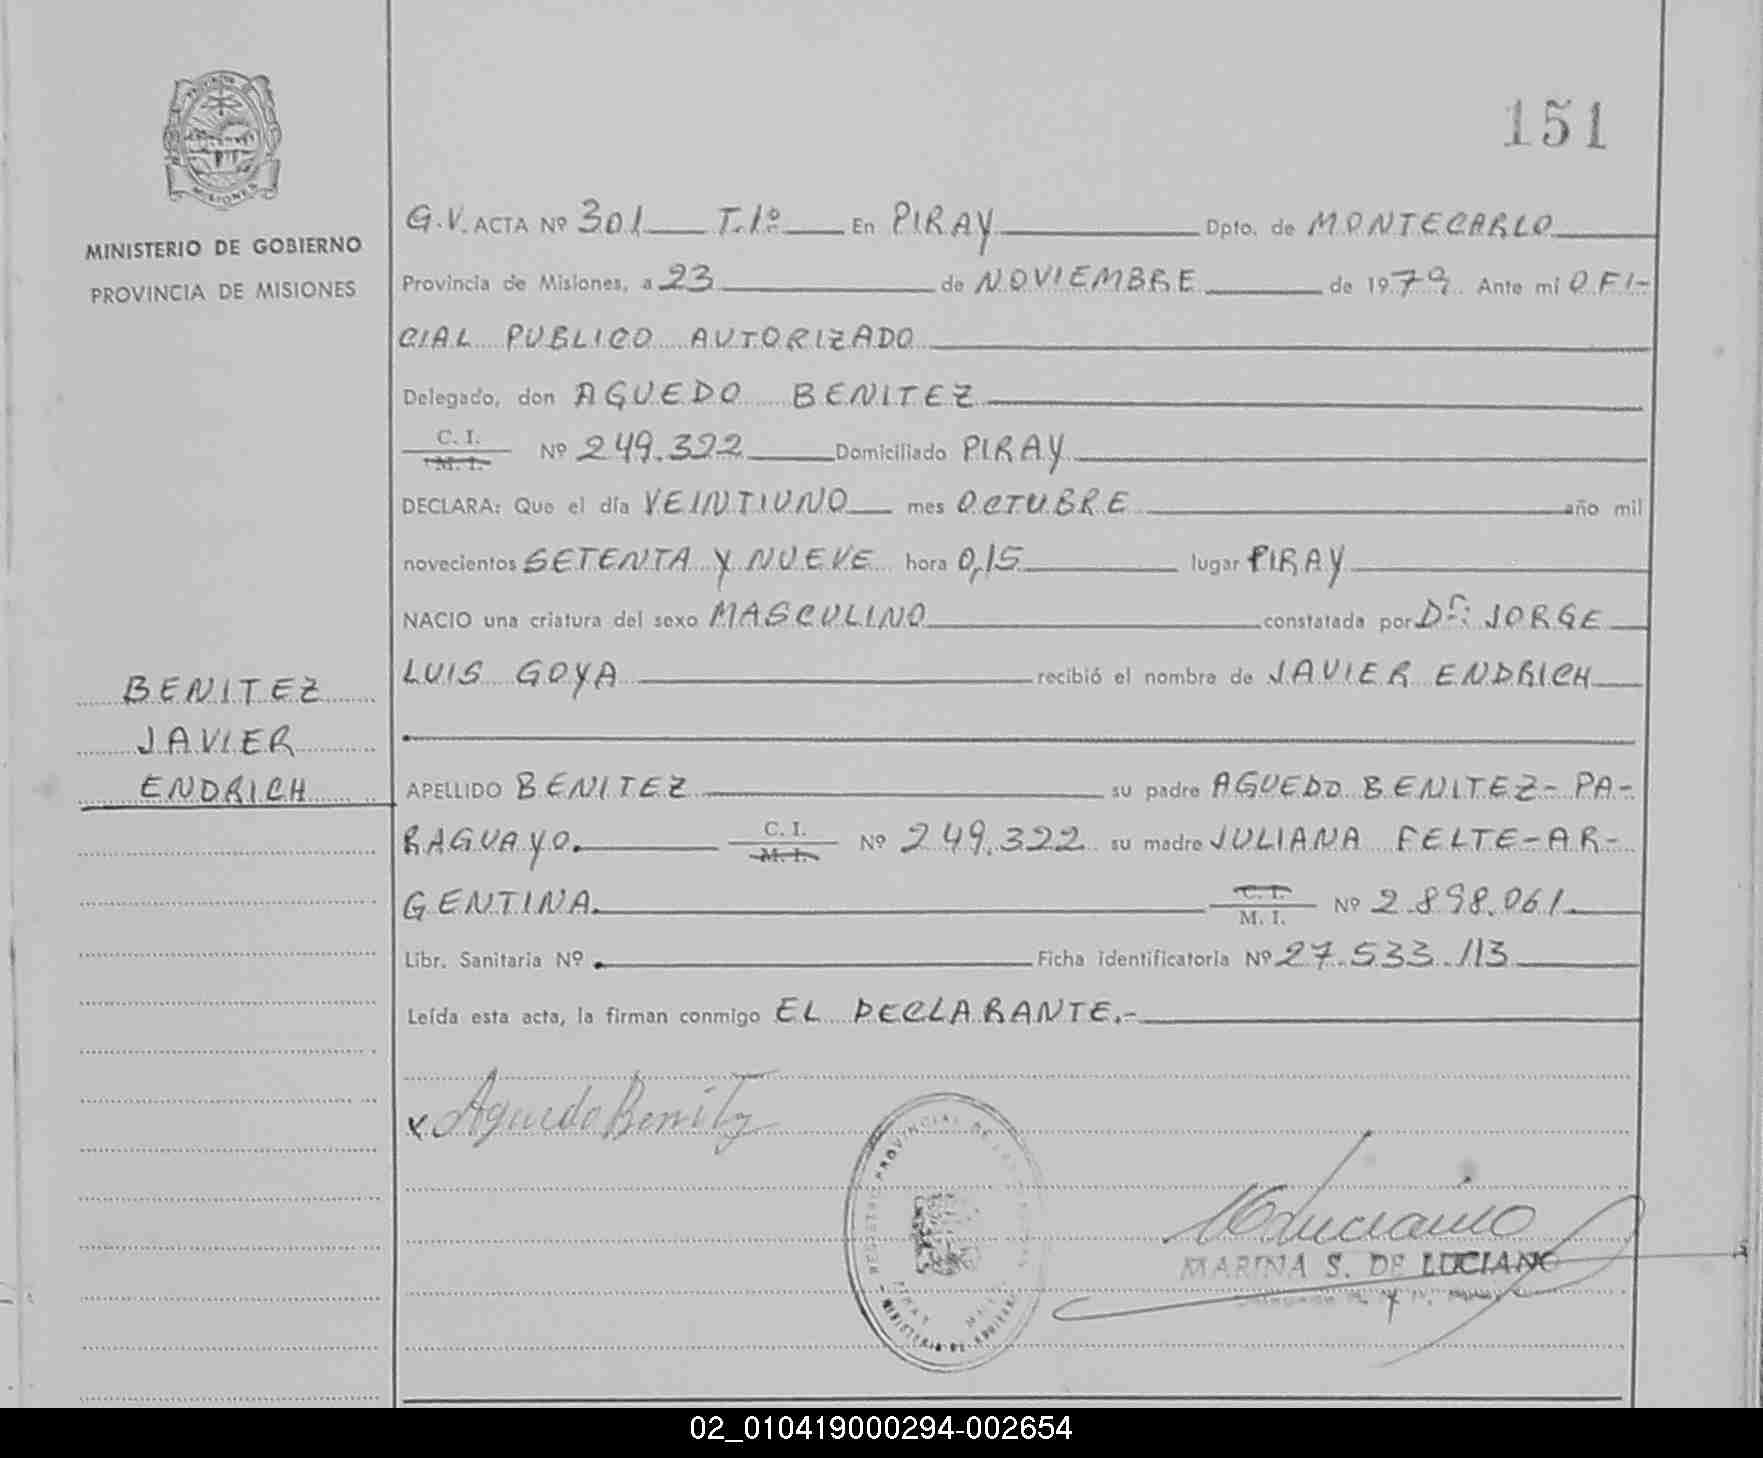 151
MINISTERIO DE GOBIERNO
PROVINCIA DE MISIONES
G.V. ACTA Nº 301 T.1º En PIRAY Dpto. de MONTECARLO
Provincia de Misiones, a 23 de NOVIEMBRE de 1979 Ante mi OFI-
CIAL PUBLICO AUTORIZADO
Delegado, don AGUEDO BENITEZ
C. I.
M. I.
Nº 249.322 Domiciliado PIRAY
DECLARA: Que el día VEINTIUNO mes OCTUBRE año mil
novecientos SETENTA Y NUEVE hora 0,15 lugar PIRAY
NACIO una criatura del sexo MASCULINO constatada por Dr: JORGE
LUIS GOYA recibió el nombre de JAVIER ENDRICH
BENITEZ
JAVIER
ENDRICH
APELLIDO BENITEZ su padre AGUEDO BENITEZ - PA-
RAGUAYO. C. I. M. I. Nº 249.322 su madre JULIANA FELTE - AR-
GENTINA. C. I. M. I. Nº 2.898.061
Libr. Sanitaria Nº Ficha identificatoria Nº 27.533.113
Leída esta acta, la firman conmigo EL DECLARANTE.-
x Aguedo Benitz
MARINA S. DE LUCIANO
02_010419000294-002654